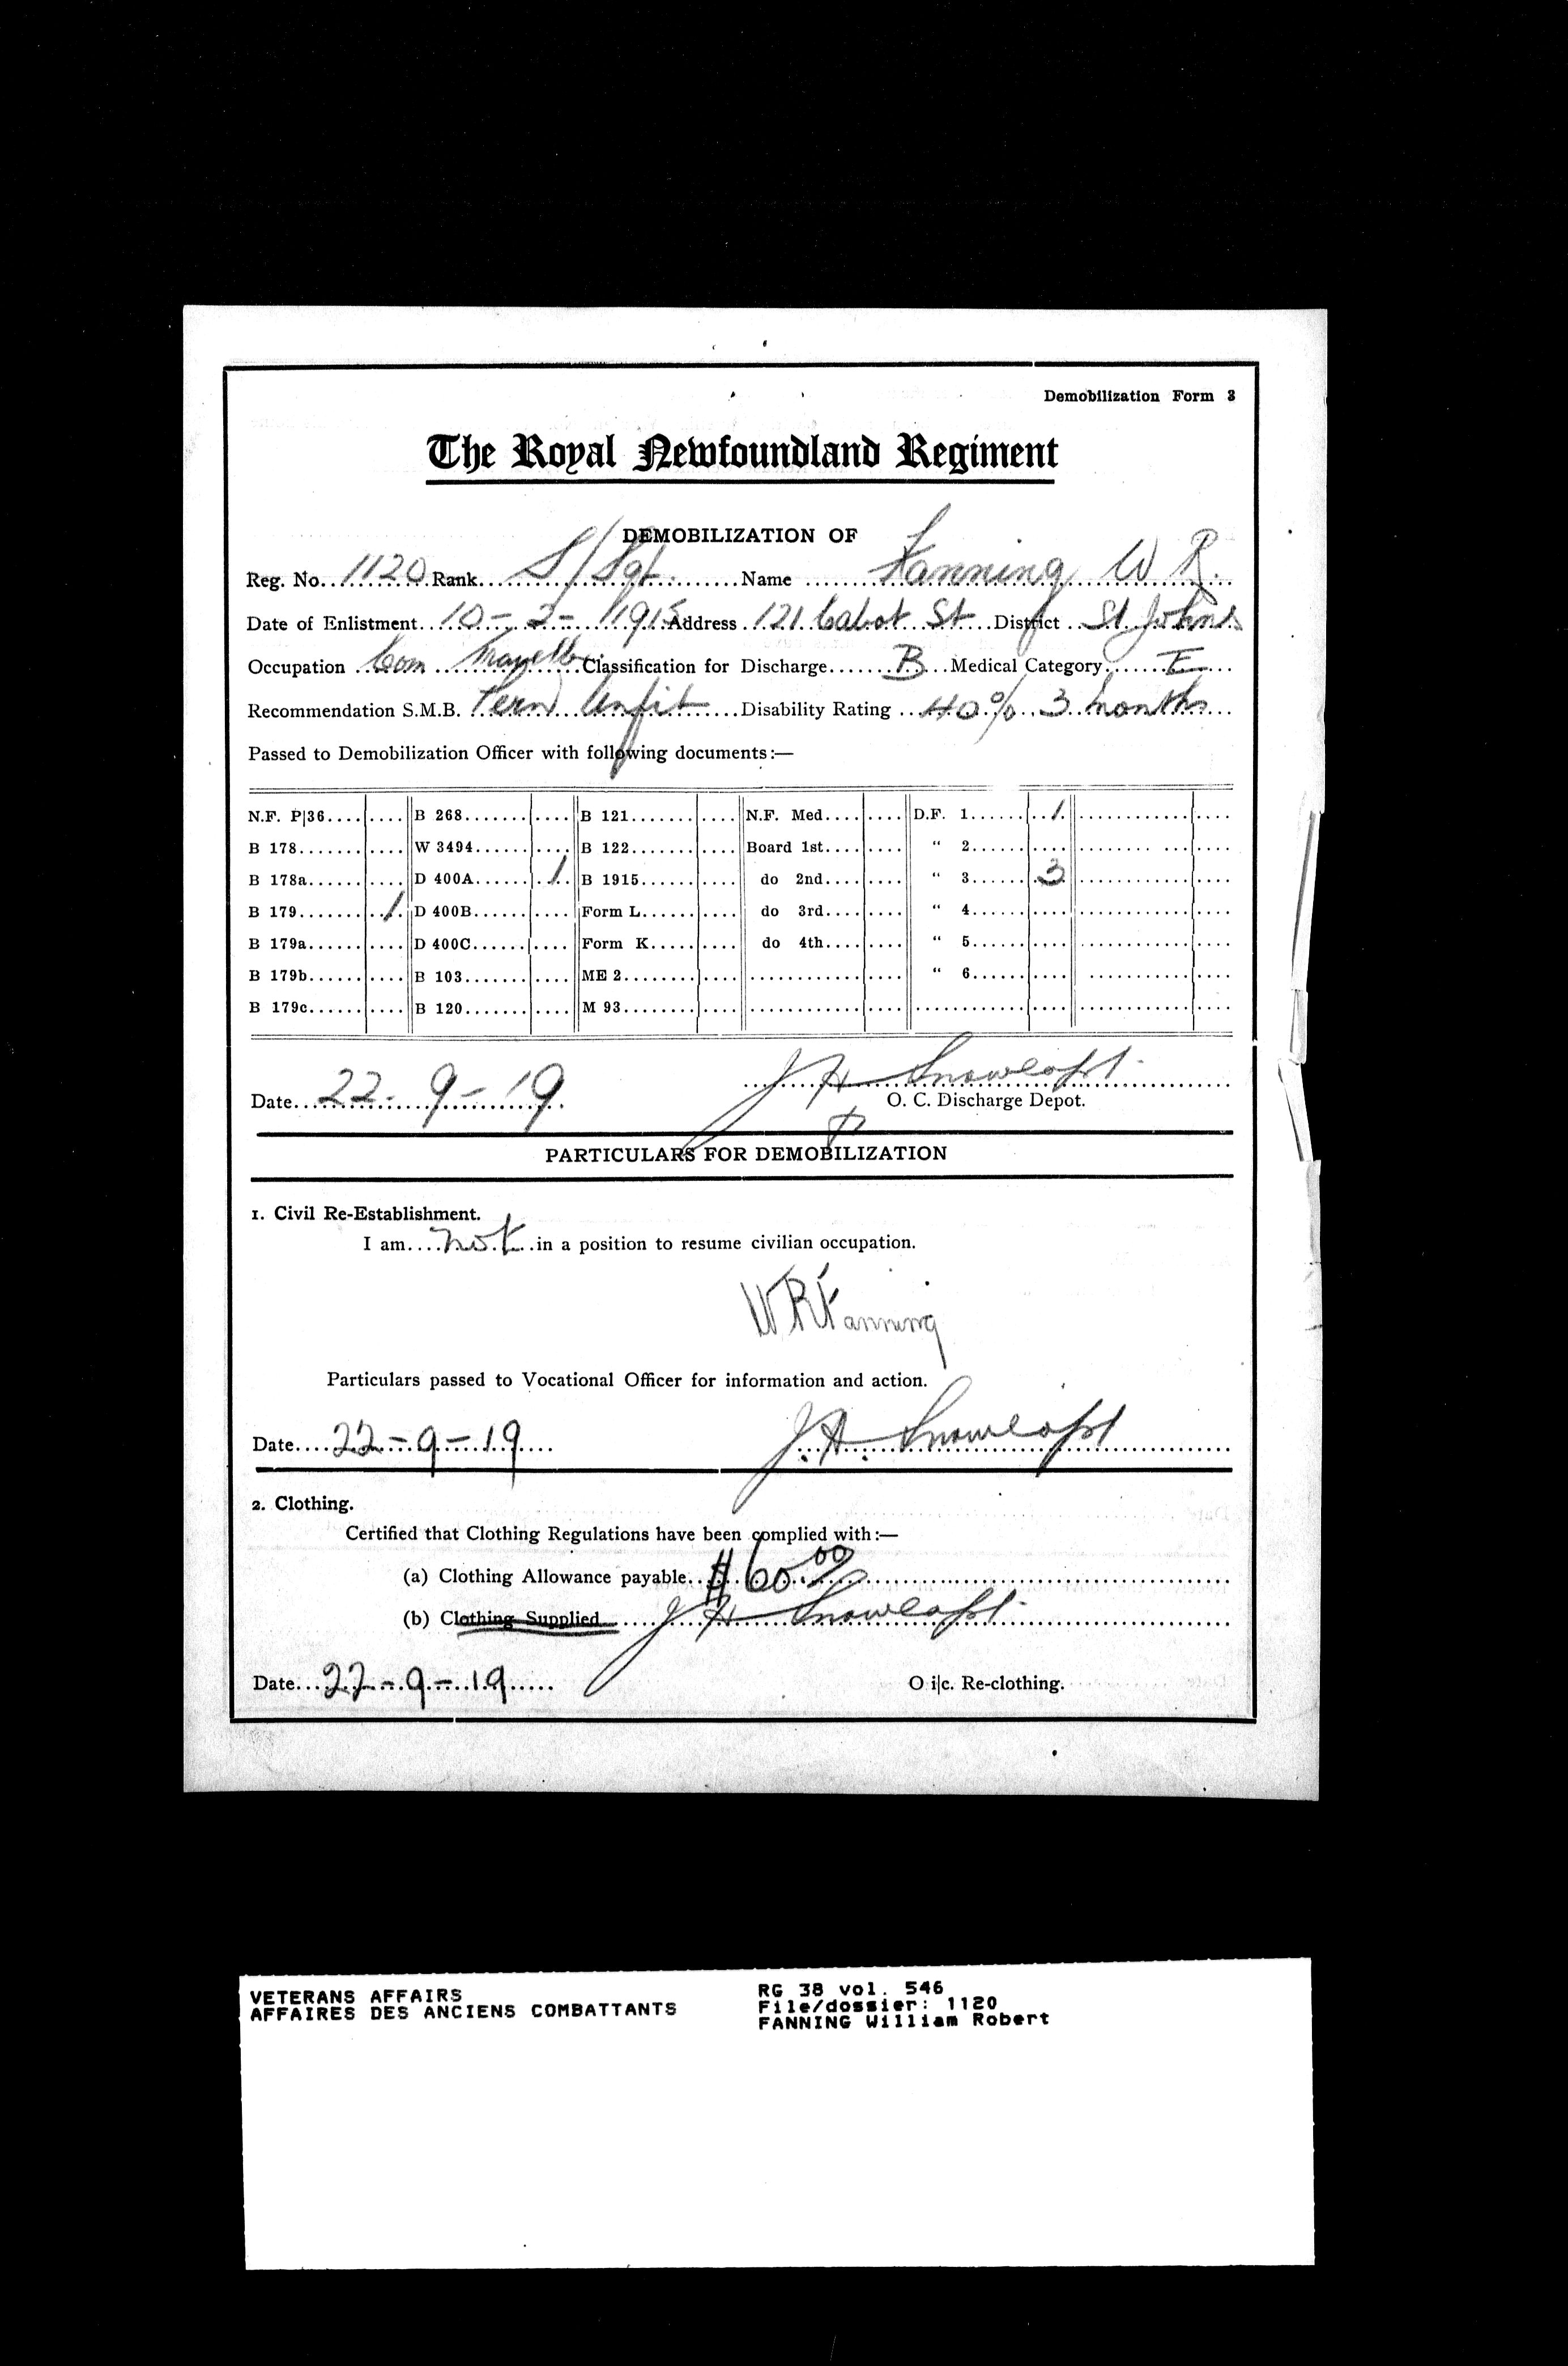 Demobilization Form 3
The Royal Newfoundland Regiment
DEMOBILIZATION OF
Reg. No. 1120 Rank S/Sgt. Name Fanning W R.
Date of Enlistment 10-2-1915 Address 121 Cabot St District St Johns
Occupation Com Traveller Classification for Discharge B Medical Category E
Recommendation S.M.B. Perm Unfit Disability Rating 40% 3 months
Passed to Demobilization Officer with following documents:—
N.F. P|36 B 268 B 121 N.F. Med D.F. 1 1
B 178 W 3494 B 122 Board 1st " 2
B 178a D 400A 1 B 1915 do 2nd " 3 3
B 179 1 D 400B Form L do 3rd " 4
B 179a D 400C Form K do 4th " 5
B 179b B 103 ME 2 " 6
B 179c B 120 M 93
Date 22-9-19 J H
O. C. Discharge Depot.
PARTICULARS FOR DEMOBILIZATION
1. Civil Re-Establishment.
I am not in a position to resume civilian occupation.
W R Fanning
Particulars passed to Vocational Officer for information and action.
Date 22-9-19 J. H.
2. Clothing.
Certified that Clothing Regulations have been complied with:—
(a) Clothing Allowance payable $60.00
(b) Clothing Supplied J H
Date 22-9-19 O i|c. Re-clothing.
VETERANS AFFAIRS RG 38 vol. 546
AFFAIRES DES ANCIENS COMBATTANTS File/dossier: 1120
FANNING William Robert